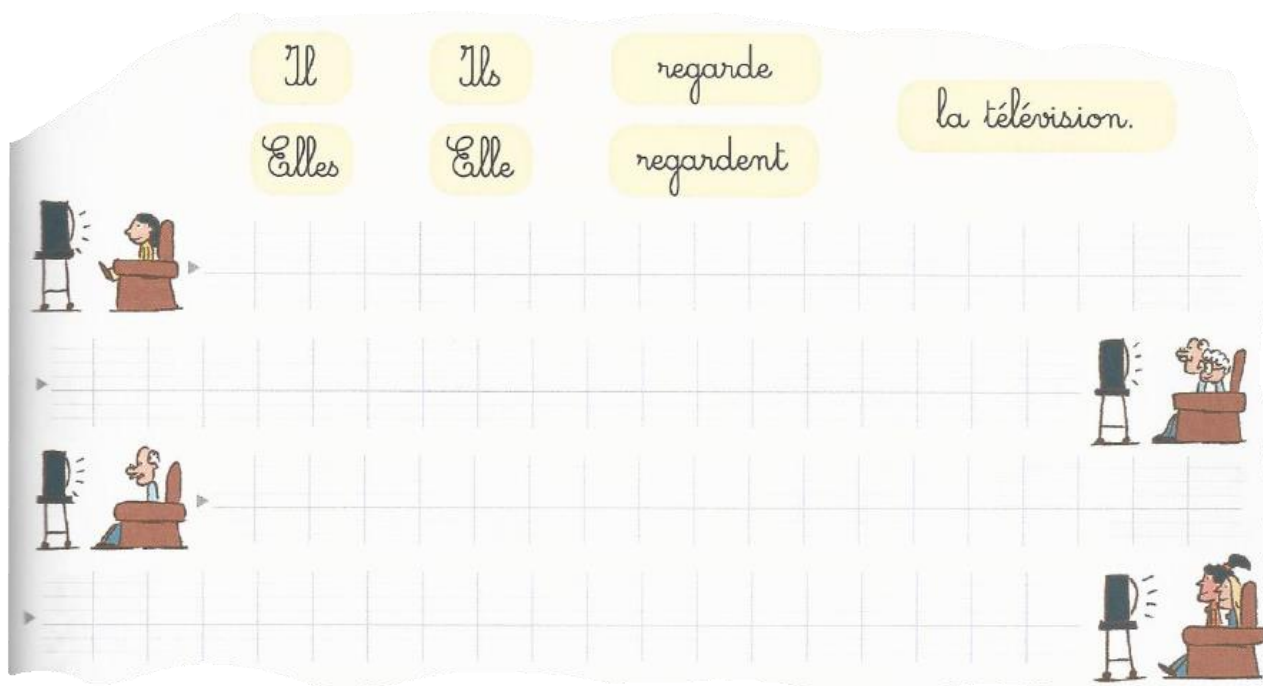 Il Ils regarde
la télévision.
Elles Elle regardent